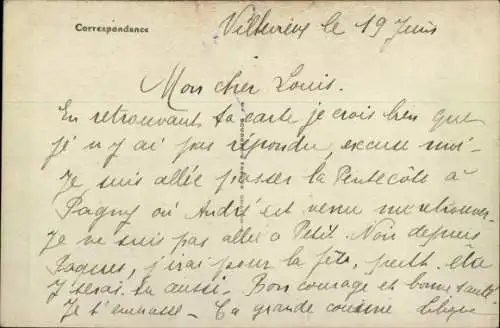 Correspondance
le 19 Juin
Mon cher Louis.
En retrouvant ta carte je crois bien que
je n'y ai pas répondu, excuse moi -
Je suis allée passer la Pentecôte à
Pagny où André est venu me retrouver.
Je ne suis pas allée à Petit. Non depuis
Pâques, j'irai pour la fête, peut être
y seras tu aussi - Bon courage et bonne santé
Je t'embrasse - Ta grande cousine